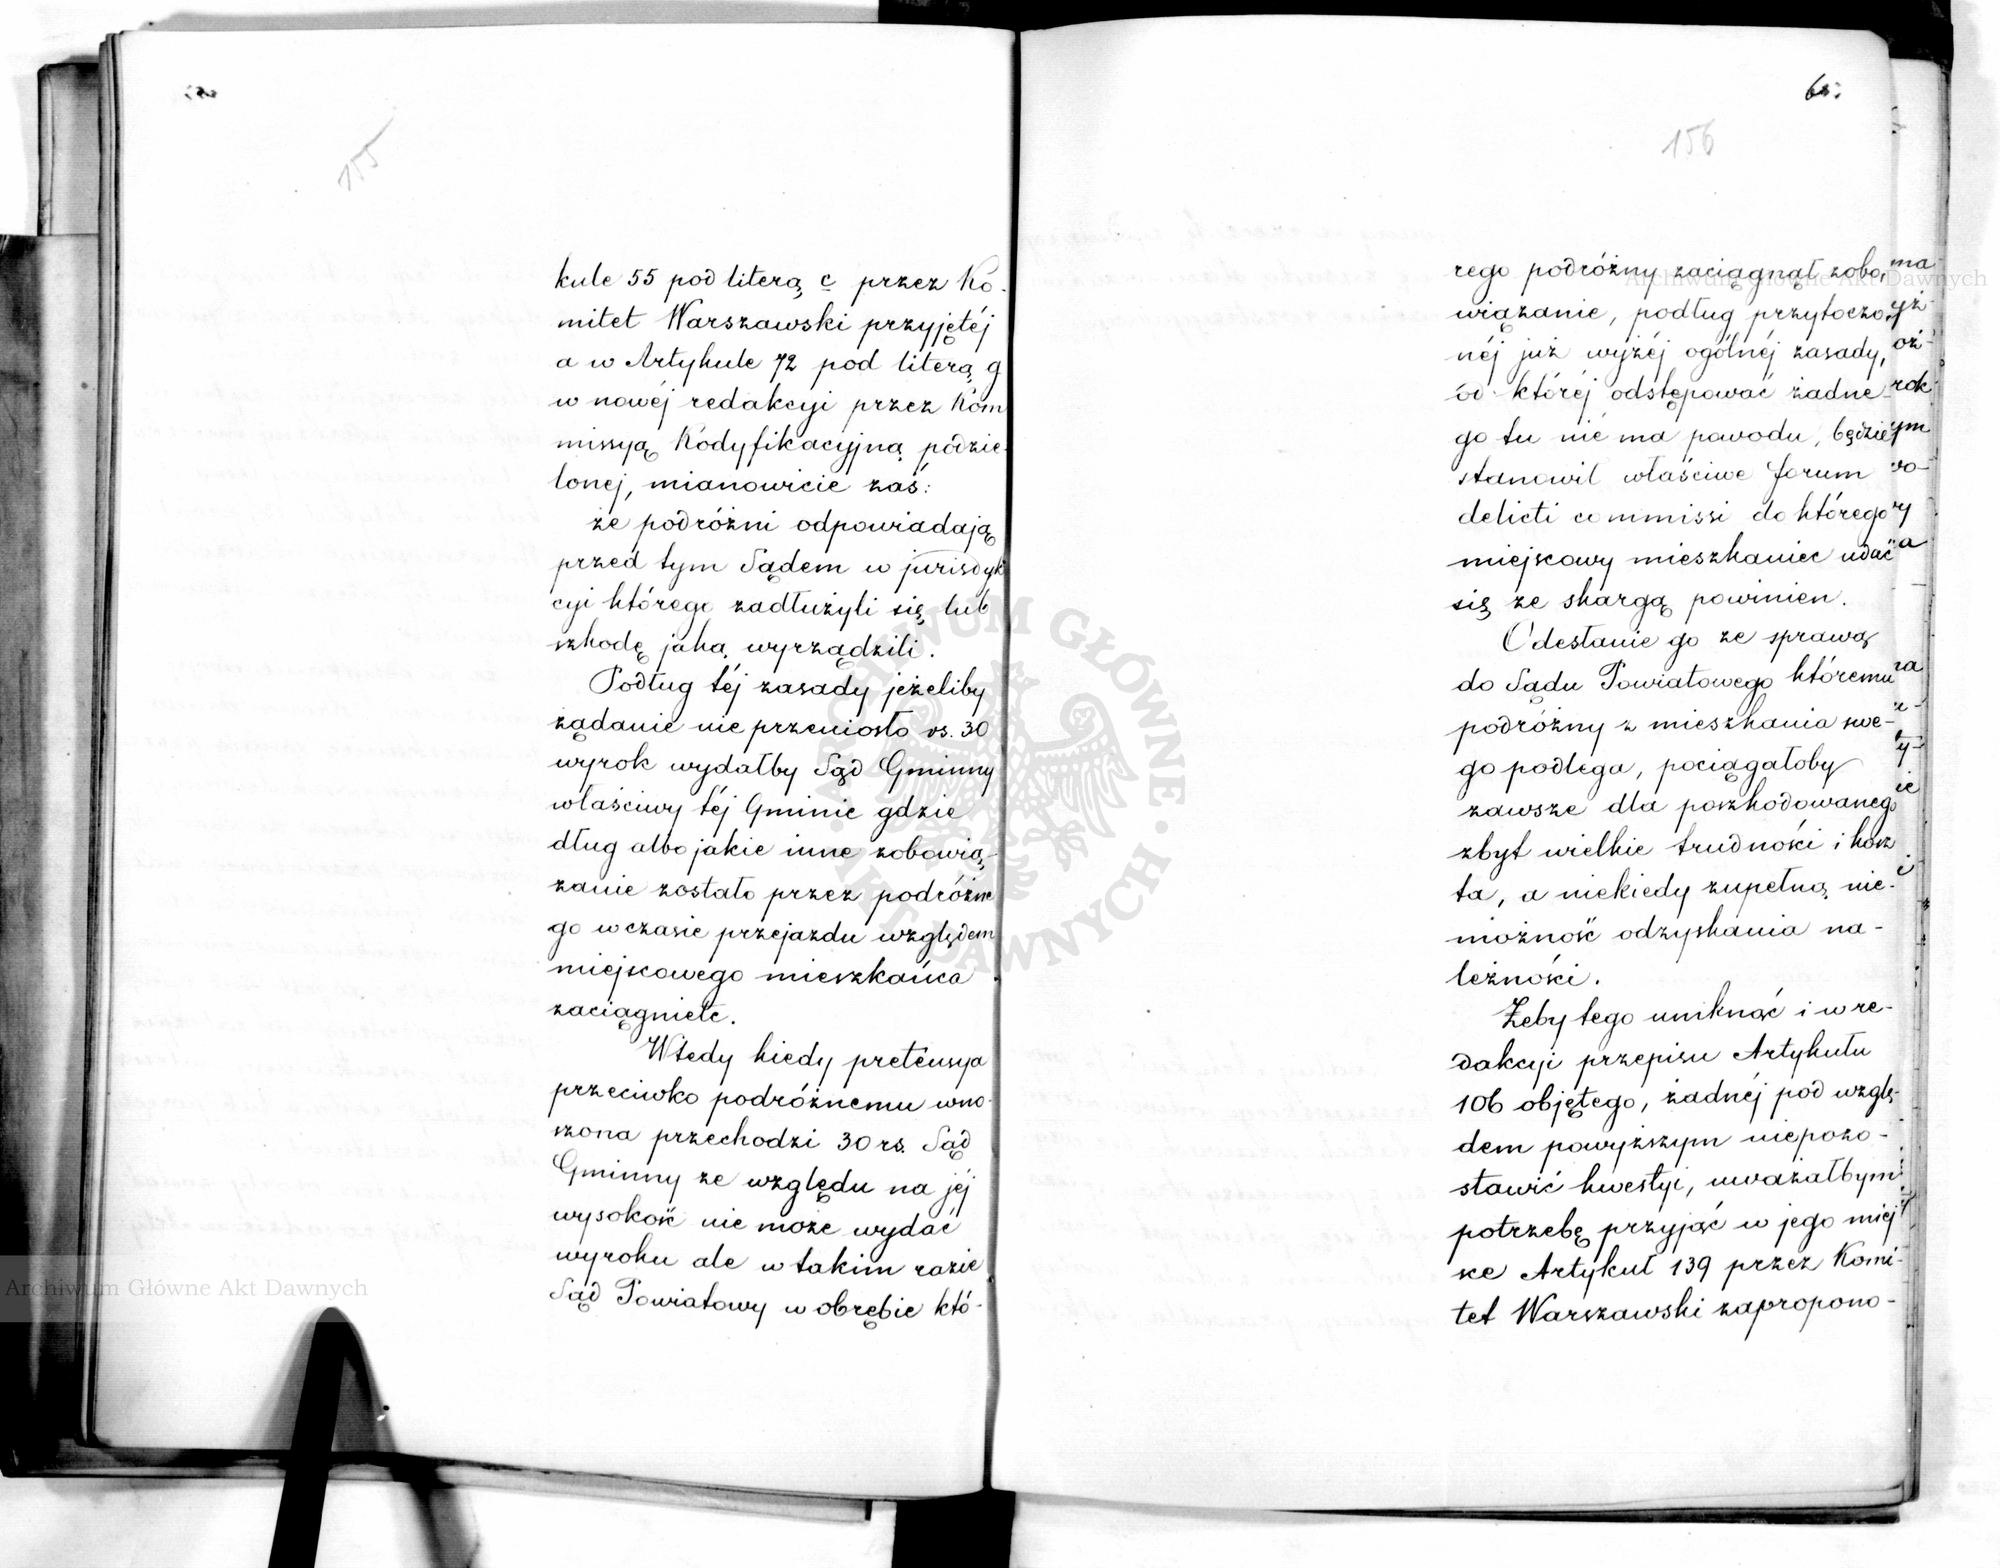 155
kule 55 pod literą c przez Ko-
mitet Warszawski przyjętéj
a w Artykule 72 pod literą g
w nowéj redakcyi przez Kom
missyą Kodyfikacyjną podzie-
lonej, mianowicie zaś:
że podróżni odpowiadają
przed tym Sądem w jurisdyk
cyi którego zadłużyli się lub
szkodę jaką wyrządzili.
Podług téj zasady jeżeliby
żądanie nie przeniosło rs. 30
wyrok wydałby Sąd Gminny
właściwy téj Gminie gdzie
dług albo jakie inne zobowią-
zanie zostało przez podróżne
go w czasie przejazdu względem
miejscowego mieszkańca
zaciągnięte.
Wtedy kiedy pretensya
przeciwko podróżnemu wno-
szona przechodzi 30 rs. Sąd
Gminny ze względu na jéj
wysokość nie może wydać
wyroku ale w takim razie
Sąd Powiatowy w obrębie któ-
156
rego podróżny zaciągnął zobo-
wiązanie, podług przytoczo-
néj już wyżéj ogólnéj zasady,
od któréj odstępować żadne-
go tu nie ma powodu, będzie
stanowił właściwe forum
delicti commissi do którego
miejscowy mieszkaniec udać
się ze skargą powinien.
Odesłanie go ze sprawą
do Sądu Powiatowego któremu
podróżny z mieszkania swe-
go podlega, pociągałoby
zawsze dla poszkodowanego
zbyt wielkie trudności i kosz
ta, a niekiedy zupełną nie-
możność odzyskania na-
leżności.
Żeby tego uniknąć i w re-
dakcyi przepisu Artykułu
106 objętego, żadnéj pod wzglę-
dem powyższym niepozo-
stawić kwestyi, uważałbym
potrzebę przyjąć w jego miej
sce Artykuł 139 przez Komi-
tet Warszawski zapropono-
Archiwum Główne Akt Dawnych
Archiwum Główne Akt Dawnych
ARCHIWUM GŁÓWNE
AKT DAWNYCH